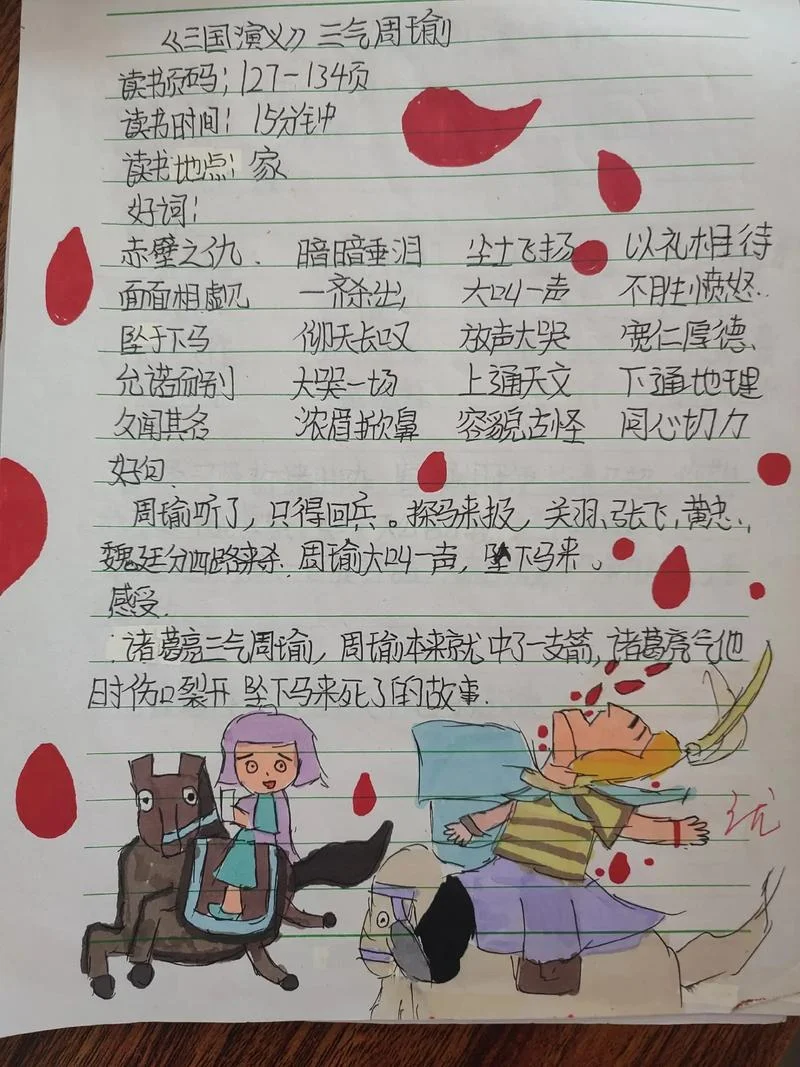 《三国演义》三气周瑜
读书页码：127-134页
读书时间：15分钟
读书地点：家
好词：
赤壁之仇. 暗暗垂泪 尘土飞扬 以礼相待
面面相觑 一齐杀出 大叫一声 不胜愤怒.
坠于下马 仰天长叹 放声大哭 宽仁厚德.
允诺而别 大哭一场 上通天文 下通地理
久闻其名 浓眉掀鼻 容貌古怪 同心切力
好句.
周瑜听了，只得回兵。探马来报，关羽、张飞、黄忠、
魏延分四路来杀.周瑜大叫一声，坠下马来。
感受.
诸葛亮三气周瑜，周瑜本来就中了一支箭，诸葛亮气他
时伤口裂开 坠下马来死了的故事.
优